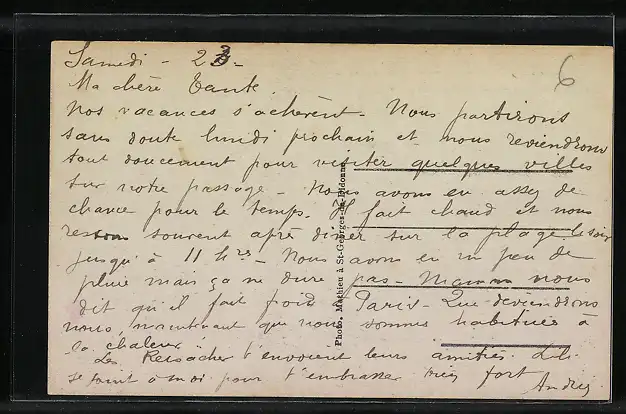 Samedi - 23 -
Ma chère Tante.
Nos vacances s'achèrent. Nous partirons
sans doute lundi prochain et nous reviendrons
tout doucement pour visiter quelques villes
sur notre passage - Nous avons eu assez de
chance pour le temps. Il fait chaud et nous
restons souvent après dîner sur la plage le soir
jusqu'à 11 hres - Nous avons eu un peu de
pluie mais ça ne dure pas - Maman nous
dit qu'il fait froid à Paris - Que deviendrons
nous, maintenant que nous sommes habitués à
la chaleur.
Les t'envoient leurs amitiés.
se joint à moi pour t'embrasser bien fort
Photo. Mathieu à St-Georges-de-Didonne
6